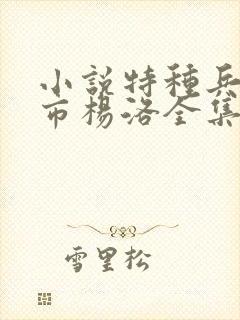 小說特種兵
市楊洛全集
雪里松